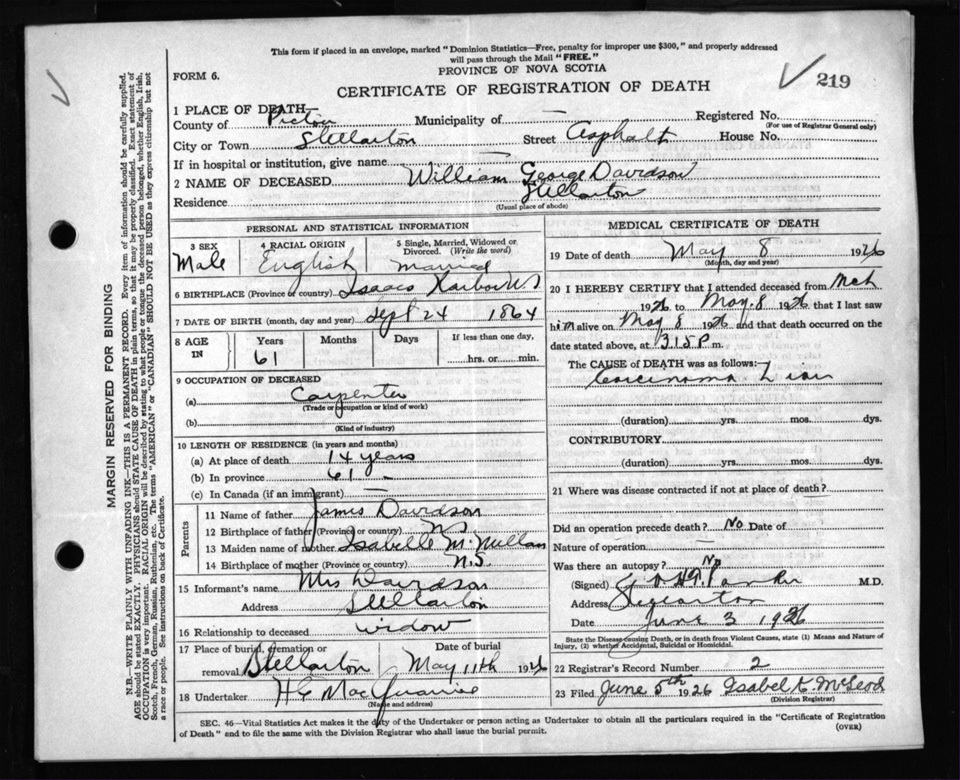 This form if placed in an envelope, marked "Dominion Statistics—Free, penalty for improper use $300," and properly addressed
will pass through the Mail "FREE."
PROVINCE OF NOVA SCOTIA
FORM 6.
219
CERTIFICATE OF REGISTRATION OF DEATH
1 PLACE OF DEATH
County of Pictou Municipality of — Registered No.
(For use of Registrar General only)
City or Town Stellarton Street Asphalt House No.
If in hospital or institution, give name —
2 NAME OF DECEASED William George Davidson
Residence Stellarton
(Usual place of abode)
PERSONAL AND STATISTICAL INFORMATION
3 SEX
Male
4 RACIAL ORIGIN
English
5 Single, Married, Widowed or
Divorced. (Write the word)
married
6 BIRTHPLACE (Province or country) Isaacs Harbor N.S
7 DATE OF BIRTH (month, day and year) Sept 24 1864
8 AGE IN Years Months Days If less than one day,
61 hrs. or min.
9 OCCUPATION OF DECEASED
(a) Carpenter
(Trade or occupation or kind of work)
(b)
(Kind of industry)
10 LENGTH OF RESIDENCE (in years and months)
(a) At place of death 14 years
(b) In province 61 —
(c) In Canada (if an immigrant) —
Parents
11 Name of father James Davidson
12 Birthplace of father (Province or country) NS
13 Maiden name of mother Isabelle McMillan
14 Birthplace of mother (Province or country) N.S.
15 Informant's name Mrs Davidson
Address Stellarton
16 Relationship to deceased widow
17 Place of burial, cremation or Date of burial
removal Stellarton May 11th 1926
18 Undertaker H E MacQuarrie
(Name and address)
MEDICAL CERTIFICATE OF DEATH
19 Date of death May 8 1926
(Month, day and year)
20 I HEREBY CERTIFY that I attended deceased from Mch
1926 to May 8 1926 that I last saw
him alive on May 8 1926 and that death occurred on the
date stated above, at 3.15 P m.
The CAUSE OF DEATH was as follows:
Carcinoma Liver
(duration) yrs. mos. dys.
CONTRIBUTORY
(duration) yrs. mos. dys.
21 Where was disease contracted if not at place of death?
Did an operation precede death? No Date of
Nature of operation —
Was there an autopsy? No
(Signed) M.D.
Address Stellarton
Date June 3 1926
State the Disease causing Death, or in death from Violent Causes, state (1) Means and Nature of
Injury, (2) whether Accidental, Suicidal or Homicidal.
22 Registrar's Record Number 2
23 Filed June 5th 1926 Isabel C McLeod
(Division Registrar)
SEC. 46—Vital Statistics Act makes it the duty of the Undertaker or person acting as Undertaker to obtain all the particulars required in the "Certificate of Registration
of Death" and to file the same with the Division Registrar who shall issue the burial permit.
(OVER)
MARGIN RESERVED FOR BINDING
N.B.—WRITE PLAINLY WITH UNFADING INK—THIS IS A PERMANENT RECORD. Every item of information should be carefully supplied.
AGE should be stated EXACTLY. PHYSICIANS should STATE CAUSE OF DEATH in plain terms, so that it may be properly classified. Exact statement of
OCCUPATION is very important. RACIAL ORIGIN will be described by stating to what people or tongue the deceased person belonged, whether English, Irish,
Scotch, French, German, Russian, Ruthenian, etc. The terms "AMERICAN" or "CANADIAN" SHOULD NOT BE USED as they express citizenship but not
a race or people. See instructions on back of Certificate.